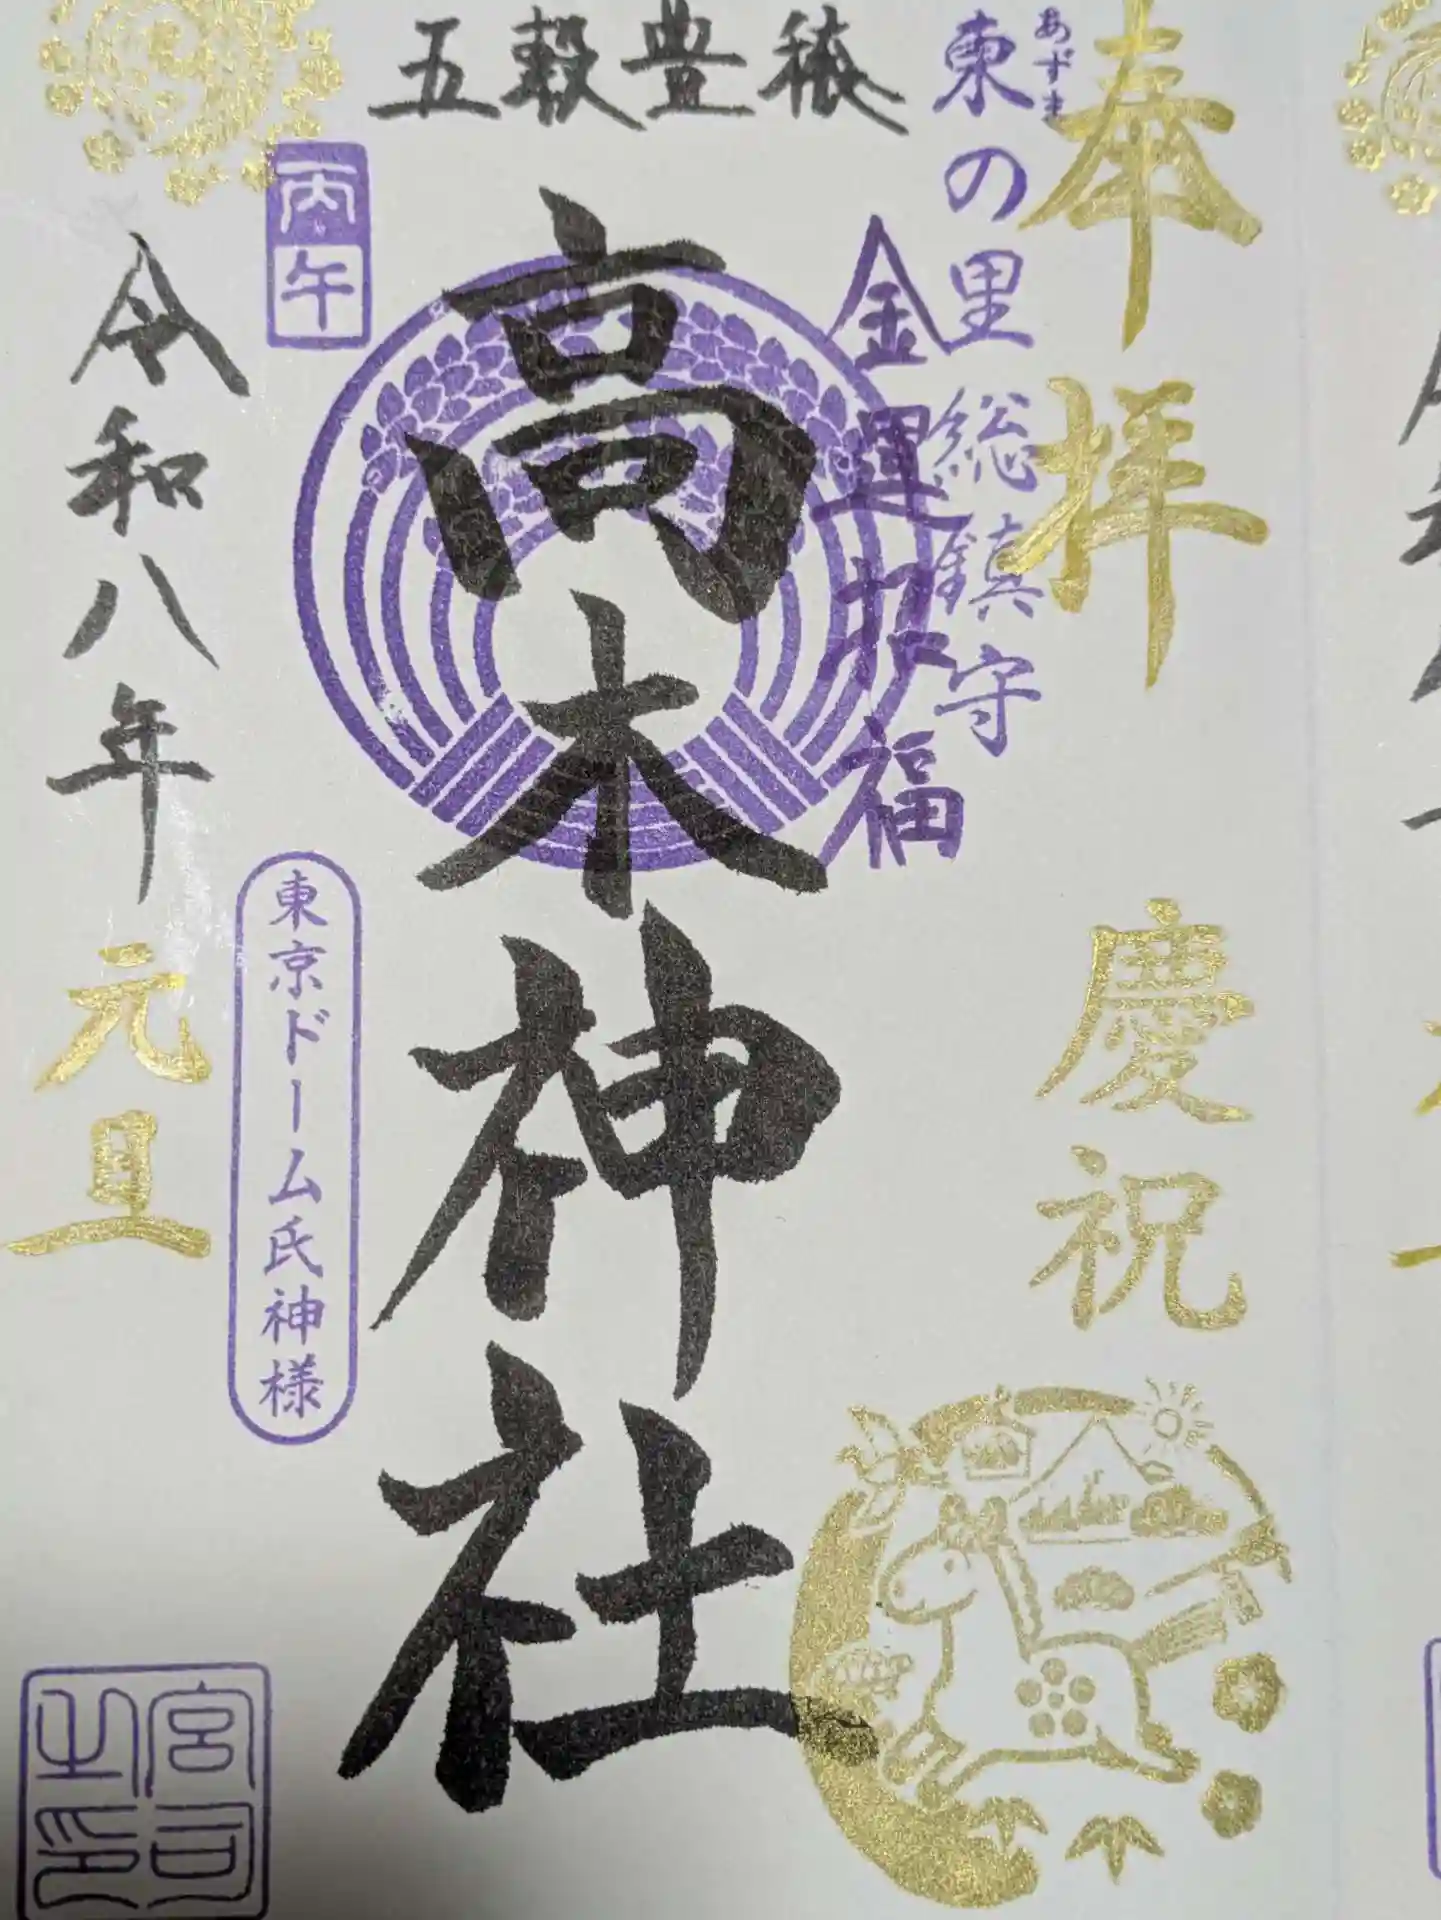 奉拝
慶祝
あずま
東の里総鎮守
金運招福
五穀豊穣
高木神社
丙午
東京ドーム氏神様
令和八年元旦
宮司之印